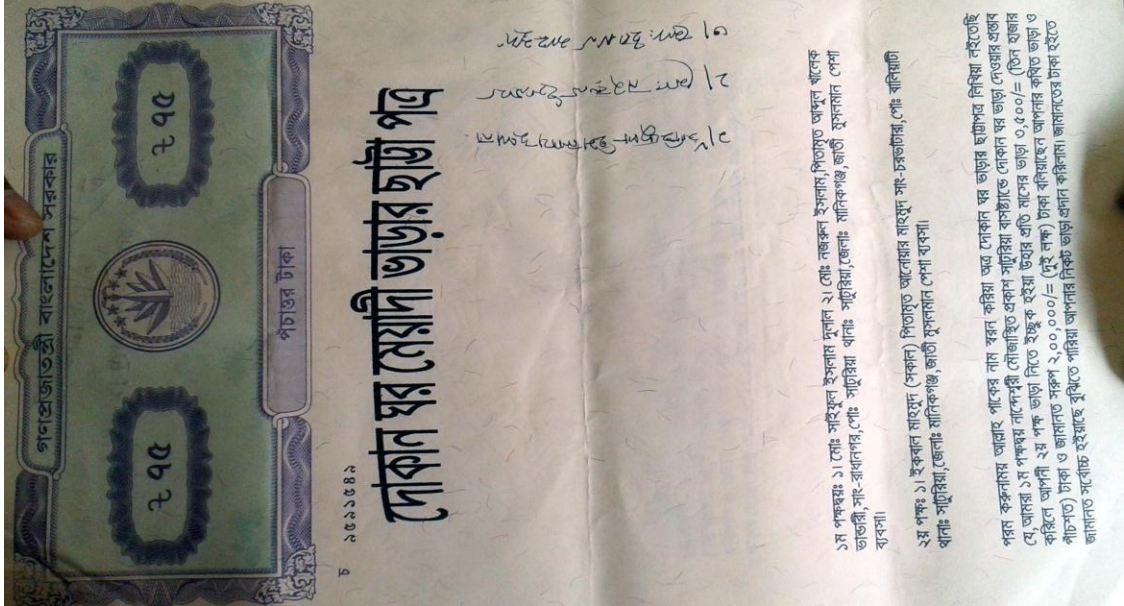 গণপ্রজাতন্ত্রী বাংলাদেশ সরকার
৳ ৭৫
৳ ৭৫
পঁচাত্তর টাকা
চ ২৫২১৫৪২
দোকান ঘর মেয়াদী ভাড়ার ছাট্টা পত্র
১ম পক্ষদ্বয়ঃ ১। মোঃ সাইফুল ইসলাম দুলাল ২। মোঃ নজরুল ইসলাম,পিতামৃত আব্দুল খালেক
ভান্ডারী,সাং-রাধানগর,পোঃ সাটুরিয়া থানাঃ সাটুরিয়া,জেলাঃ মানিকগঞ্জ,জাতী মুসলমান পেশা
ব্যবসা।
২য় পক্ষঃ ১। ইকবাল মাহমুদ (সকাল) পিতামৃত আনোয়ার মাহমুদ সাং-চরভাটারা,পোঃ বালিয়াটী
থানাঃ সাটুরিয়া,জেলাঃ মানিকগঞ্জ,জাতী মুসলমান পেশা ব্যবসা।
পরম করুনাময় আল্লাহ পাকের নাম স্বরন করিয়া অত্র দোকান ঘর ভাড়ার ছাট্টাপত্র লিখিয়া লইতেছি
যে,আমরা ১ম পক্ষদ্বয় নান্দেশ্বরী মৌজাস্থিত প্রকাশ সাটুরিয়া বাসষ্ট্যান্ডে দোকান ঘর ভাড়া দেওয়ার প্রস্তাব
করিলে আপনী ২য় পক্ষ ভাড়া নিতে ইচ্ছুক হইয়া উহার প্রতি মাসের ভাড়া ৩,৫০০/= (তিন হাজার
পাঁচশত) টাকা ও জামানত সরুপ ২,০০,০০০/= (দুই লক্ষ) টাকা বলিয়াছেন আপনার কথিত ভাড়া ও
জামানত সর্বোচ্চ হইয়াছে বুঝিতে পারিয়া আপনার নিকট ভাড়া প্রদান করিলাম। জামানতের টাকা হইতে